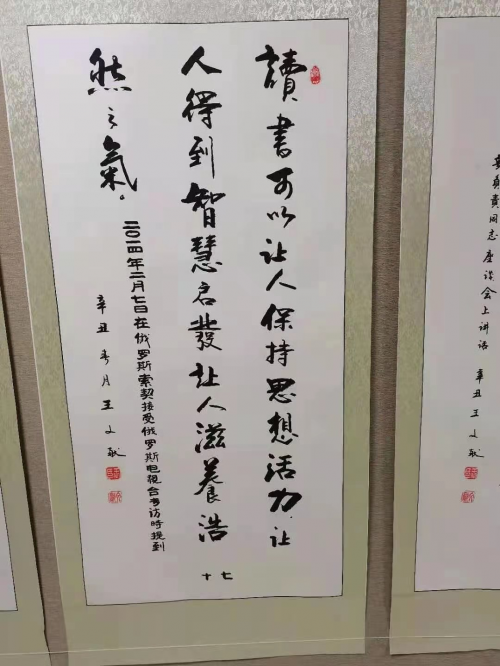 讀書可以让人保持思想活力，让
人得到智慧启發让人滋養浩
然之氣。
二〇一四年二月七日在俄罗斯索契接受俄罗斯电视台专访时提到
辛丑春月王文献
十七
同志座谈会上讲话
辛丑王文献